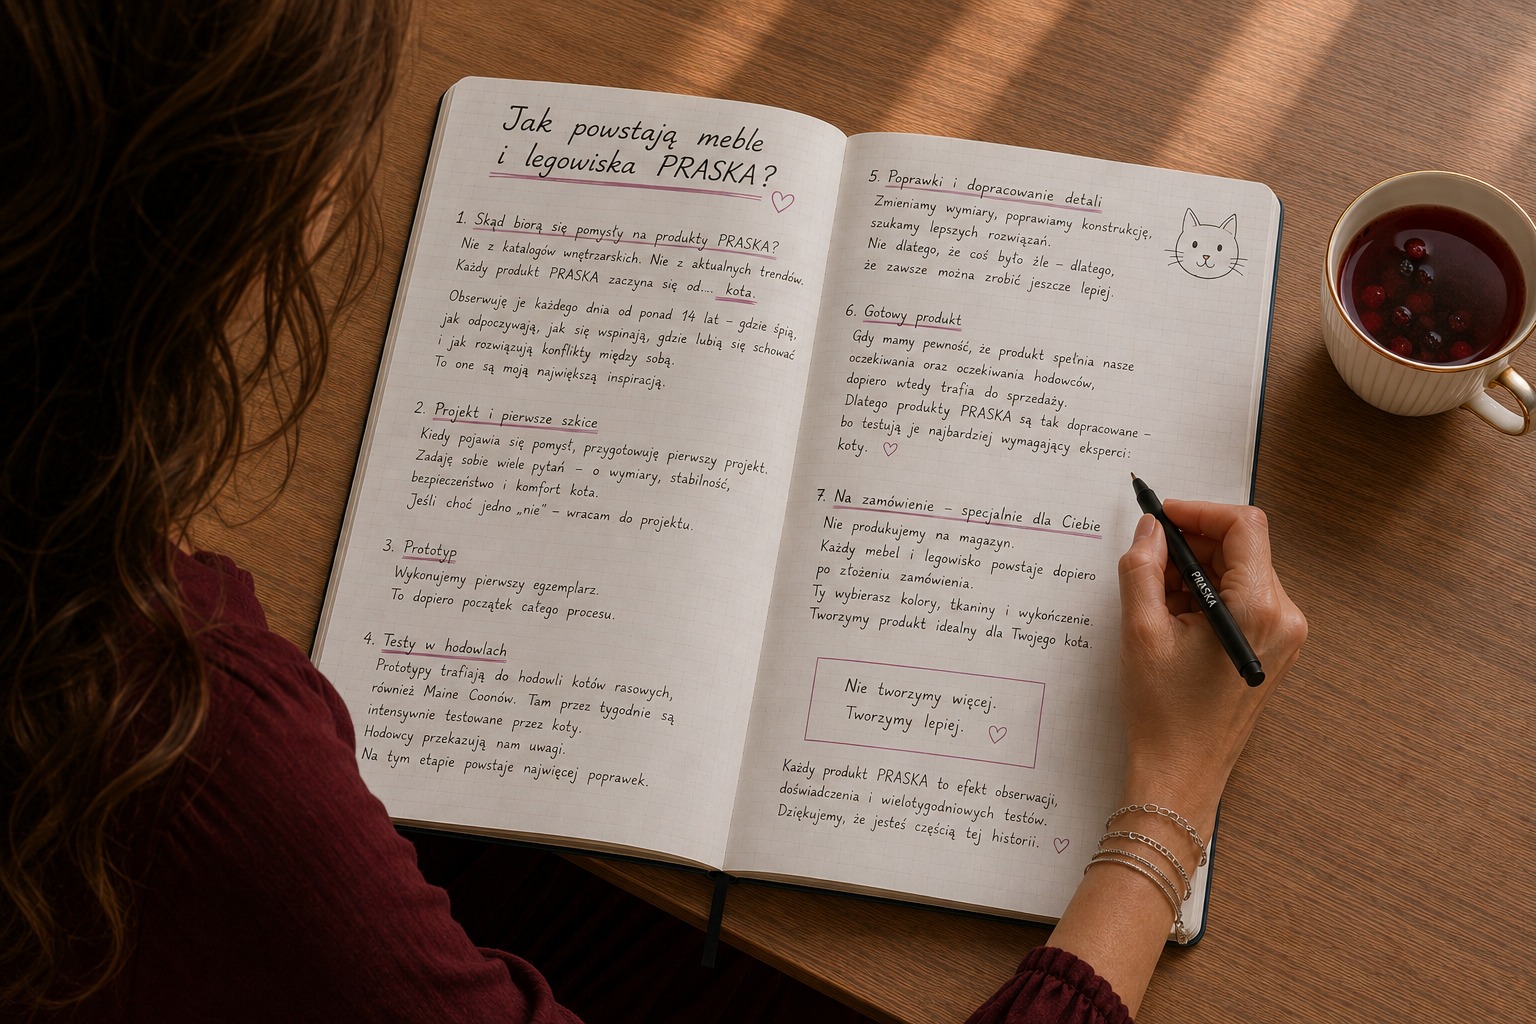 Jak powstają meble
i legowiska PRASKA?
1. Skąd biorą się pomysły na produkty PRASKA?
Nie z katalogów wnętrzarskich. Nie z aktualnych trendów.
Każdy produkt PRASKA zaczyna się od.... kota.
Obserwuję je każdego dnia od ponad 14 lat – gdzie śpią,
jak odpoczywają, jak się wspinają, gdzie lubią się schować
i jak rozwiązują konflikty między sobą.
To one są moją największą inspiracją.
2. Projekt i pierwsze szkice
Kiedy pojawia się pomysł, przygotowuję pierwszy projekt.
Zadaję sobie wiele pytań – o wymiary, stabilność,
bezpieczeństwo i komfort kota.
Jeśli choć jedno „nie” – wracam do projektu.
3. Prototyp
Wykonujemy pierwszy egzemplarz.
To dopiero początek całego procesu.
4. Testy w hodowlach
Prototypy trafiają do hodowli kotów rasowych,
również Maine Coonów. Tam przez tygodnie są
intensywnie testowane przez koty.
Hodowcy przekazują nam uwagi.
Na tym etapie powstaje najwięcej poprawek.
5. Poprawki i dopracowanie detali
Zmieniamy wymiary, poprawiamy konstrukcję,
szukamy lepszych rozwiązań.
Nie dlatego, że coś było źle – dlatego,
że zawsze można zrobić jeszcze lepiej.
6. Gotowy produkt
Gdy mamy pewność, że produkt spełnia nasze
oczekiwania oraz oczekiwania hodowców,
dopiero wtedy trafia do sprzedaży.
Dlatego produkty PRASKA są tak dopracowane –
bo testują je najbardziej wymagający eksperci:
koty.
7. Na zamówienie – specjalnie dla Ciebie
Nie produkujemy na magazyn.
Każdy mebel i legowisko powstaje dopiero
po złożeniu zamówienia.
Ty wybierasz kolory, tkaniny i wykończenie.
Tworzymy produkt idealny dla Twojego kota.
Nie tworzymy więcej.
Tworzymy lepiej.
Każdy produkt PRASKA to efekt obserwacji,
doświadczenia i wielotygodniowych testów.
Dziękujemy, że jesteś częścią tej historii.
PRASKA